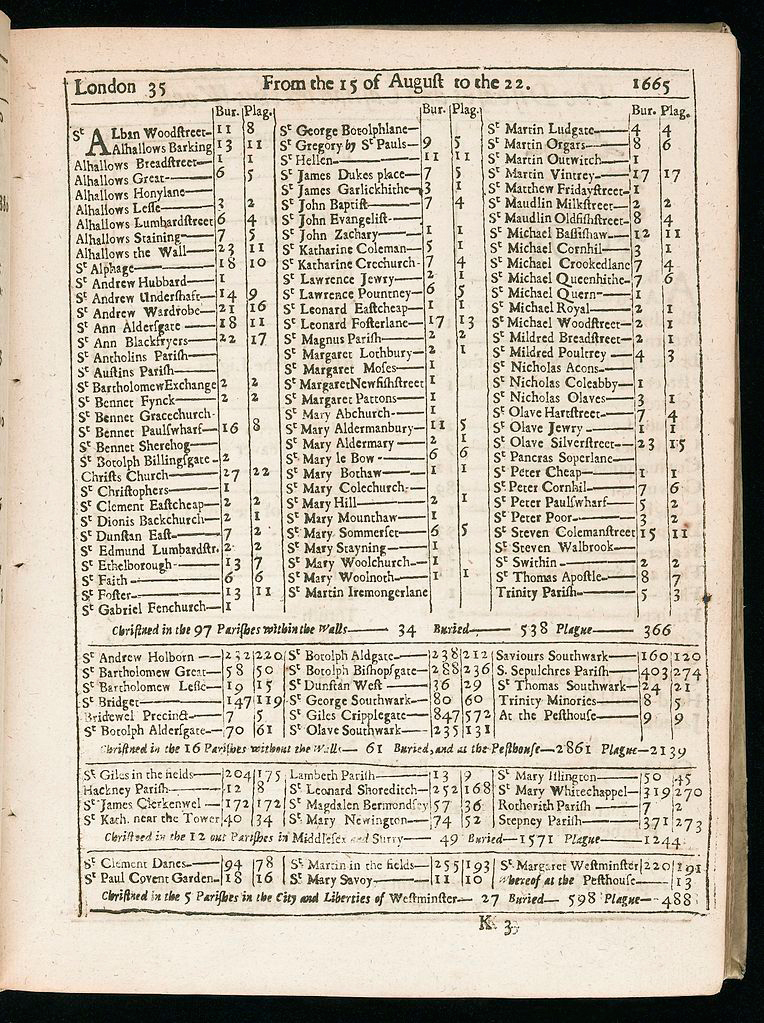 London 35 From the 15 of Auguſt to the 22. 1665
Bur. Plag.
Sᵗ ALban Woodſtreet 11 8
Alhallows Barking 13 11
Alhallows Breadſtreet 1 1
Alhallows Great 6 5
Alhallows Honylane
Alhallows Leſſe 3 2
Alhallows Lumbardſtreet 6 4
Alhallows Staining 7 5
Alhallows the Wall 23 11
Sᵗ Alphage 18 10
Sᵗ Andrew Hubbard 1
Sᵗ Andrew Underſhaft 14 9
Sᵗ Andrew Wardrobe 21 16
Sᵗ Ann Alderſgate 18 11
Sᵗ Ann Blackfryers 22 17
Sᵗ Antholins Pariſh
Sᵗ Auſtins Pariſh
Sᵗ Bartholomew Exchange 2 2
Sᵗ Bennet Fynck 2 2
Sᵗ Bennet Gracechurch
Sᵗ Bennet Paulſwharf 16 8
Sᵗ Bennet Sherehog
Sᵗ Botolph Billingſgate 2
Chriſts Church 27 22
Sᵗ Chriſtophers 1
Sᵗ Clement Eaſtcheap 2 2
Sᵗ Dionis Backchurch 2 1
Sᵗ Dunſtan Eaſt 7 2
Sᵗ Edmund Lumbardſtr. 2 2
Sᵗ Ethelborough 13 7
Sᵗ Faith 6 6
Sᵗ Foſter 13 11
Sᵗ Gabriel Fenchurch 1
Bur. Plag.
Sᵗ George Botolphlane
Sᵗ Gregory by Sᵗ Pauls 9 5
Sᵗ Hellen 11 11
Sᵗ James Dukes place 7 5
Sᵗ James Garlickhithe 3 1
Sᵗ John Baptiſt 7 4
Sᵗ John Evangeliſt
Sᵗ John Zachary 1 1
Sᵗ Katharine Coleman 5 1
Sᵗ Katharine Crechurch 7 4
Sᵗ Lawrence Jewry 2 1
Sᵗ Lawrence Pountney 6 5
Sᵗ Leonard Eaſtcheap 1 1
Sᵗ Leonard Foſterlane 17 13
Sᵗ Magnus Pariſh 2 2
Sᵗ Margaret Lothbury 2 1
Sᵗ Margaret Moſes 1
Sᵗ Margaret Newfiſhſtreet 1
Sᵗ Margaret Pattons 1
Sᵗ Mary Abchurch 1
Sᵗ Mary Aldermanbury 11 5
Sᵗ Mary Aldermary 2 1
Sᵗ Mary le Bow 6 6
Sᵗ Mary Bothaw 1 1
Sᵗ Mary Colechurch
Sᵗ Mary Hill 2 1
Sᵗ Mary Mounthaw 1
Sᵗ Mary Sommerſet 6 5
Sᵗ Mary Stayning 1
Sᵗ Mary Woolchurch 1
Sᵗ Mary Woolnoth 1 1
Sᵗ Martin Iremongerlane
Bur. Plag.
Sᵗ Martin Ludgate 4 4
Sᵗ Martin Orgars 8 6
Sᵗ Martin Outwitch 1
Sᵗ Martin Vintrey 17 17
Sᵗ Matthew Fridayſtreet 1
Sᵗ Maudlin Milkſtreet 2 2
Sᵗ Maudlin Oldfiſhſtreet 8 4
Sᵗ Michael Baſſiſhaw 12 11
Sᵗ Michael Cornhil 3 1
Sᵗ Michael Crookedlane 7 4
Sᵗ Michael Queenhithe 7 6
Sᵗ Michael Quern 1
Sᵗ Michael Royal 2 1
Sᵗ Michael Woodſtreet 2 1
Sᵗ Mildred Breadſtreet 2 1
Sᵗ Mildred Poultrey 4 3
Sᵗ Nicholas Acons
Sᵗ Nicholas Coleabby 1
Sᵗ Nicholas Olaves 3 1
Sᵗ Olave Hartſtreet 7 4
Sᵗ Olave Jewry 1 1
Sᵗ Olave Silverſtreet 23 15
Sᵗ Pancras Soperlane
Sᵗ Peter Cheap 1 1
Sᵗ Peter Cornhil 7 6
Sᵗ Peter Paulſwharf 5 2
Sᵗ Peter Poor 3 2
Sᵗ Steven Colemanſtreet 15 11
Sᵗ Steven Walbrook
Sᵗ Swithin 2 2
Sᵗ Thomas Apoſtle 8 7
Trinity Pariſh 5 3
Chriſtned in the 97 Pariſhes within the Walls 34 Buried 538 Plague 366
Sᵗ Andrew Holborn 232 220
Sᵗ Bartholomew Great 58 50
Sᵗ Bartholomew Leſſe 19 15
Sᵗ Bridget 147 119
Bridewel Precinct 7 5
Sᵗ Botolph Alderſgate 70 61
Sᵗ Botolph Aldgate 238 212
Sᵗ Botolph Biſhopſgate 288 236
Sᵗ Dunſtan Weſt 36 29
Sᵗ George Southwark 80 60
Sᵗ Giles Cripplegate 847 572
Sᵗ Olave Southwark 235 131
Saviours Southwark 160 120
S. Sepulchres Pariſh 403 274
Sᵗ Thomas Southwark 24 21
Trinity Minories 8 5
At the Peſthouſe 9 9
Chriſtned in the 16 Pariſhes without the Walls 61 Buried, and at the Peſthouſe 2861 Plague 2139
Sᵗ Giles in the fields 204 175
Hackney Pariſh 12 8
Sᵗ James Clerkenwel 172 172
Sᵗ Kath. near the Tower 40 34
Lambeth Pariſh 13 9
Sᵗ Leonard Shoreditch 252 168
Sᵗ Magdalen Bermondſey 57 36
Sᵗ Mary Newington 74 52
Sᵗ Mary Iſlington 50 45
Sᵗ Mary Whitechappel 319 270
Rothorith Pariſh 7 2
Stepney Pariſh 371 273
Chriſtned in the 12 out Pariſhes in Middleſex and Surry 49 Buried 1571 Plague 1244
Sᵗ Clement Danes 94 78
Sᵗ Paul Covent Garden 18 16
Sᵗ Martin in the fields 255 193
Sᵗ Mary Savoy 11 10
Sᵗ Margaret Weſtminſter 220 191
Whereof at the Peſthouſe 13
Chriſtned in the 5 Pariſhes in the City and Liberties of Weſtminſter 27 Buried 598 Plague 488
K 3